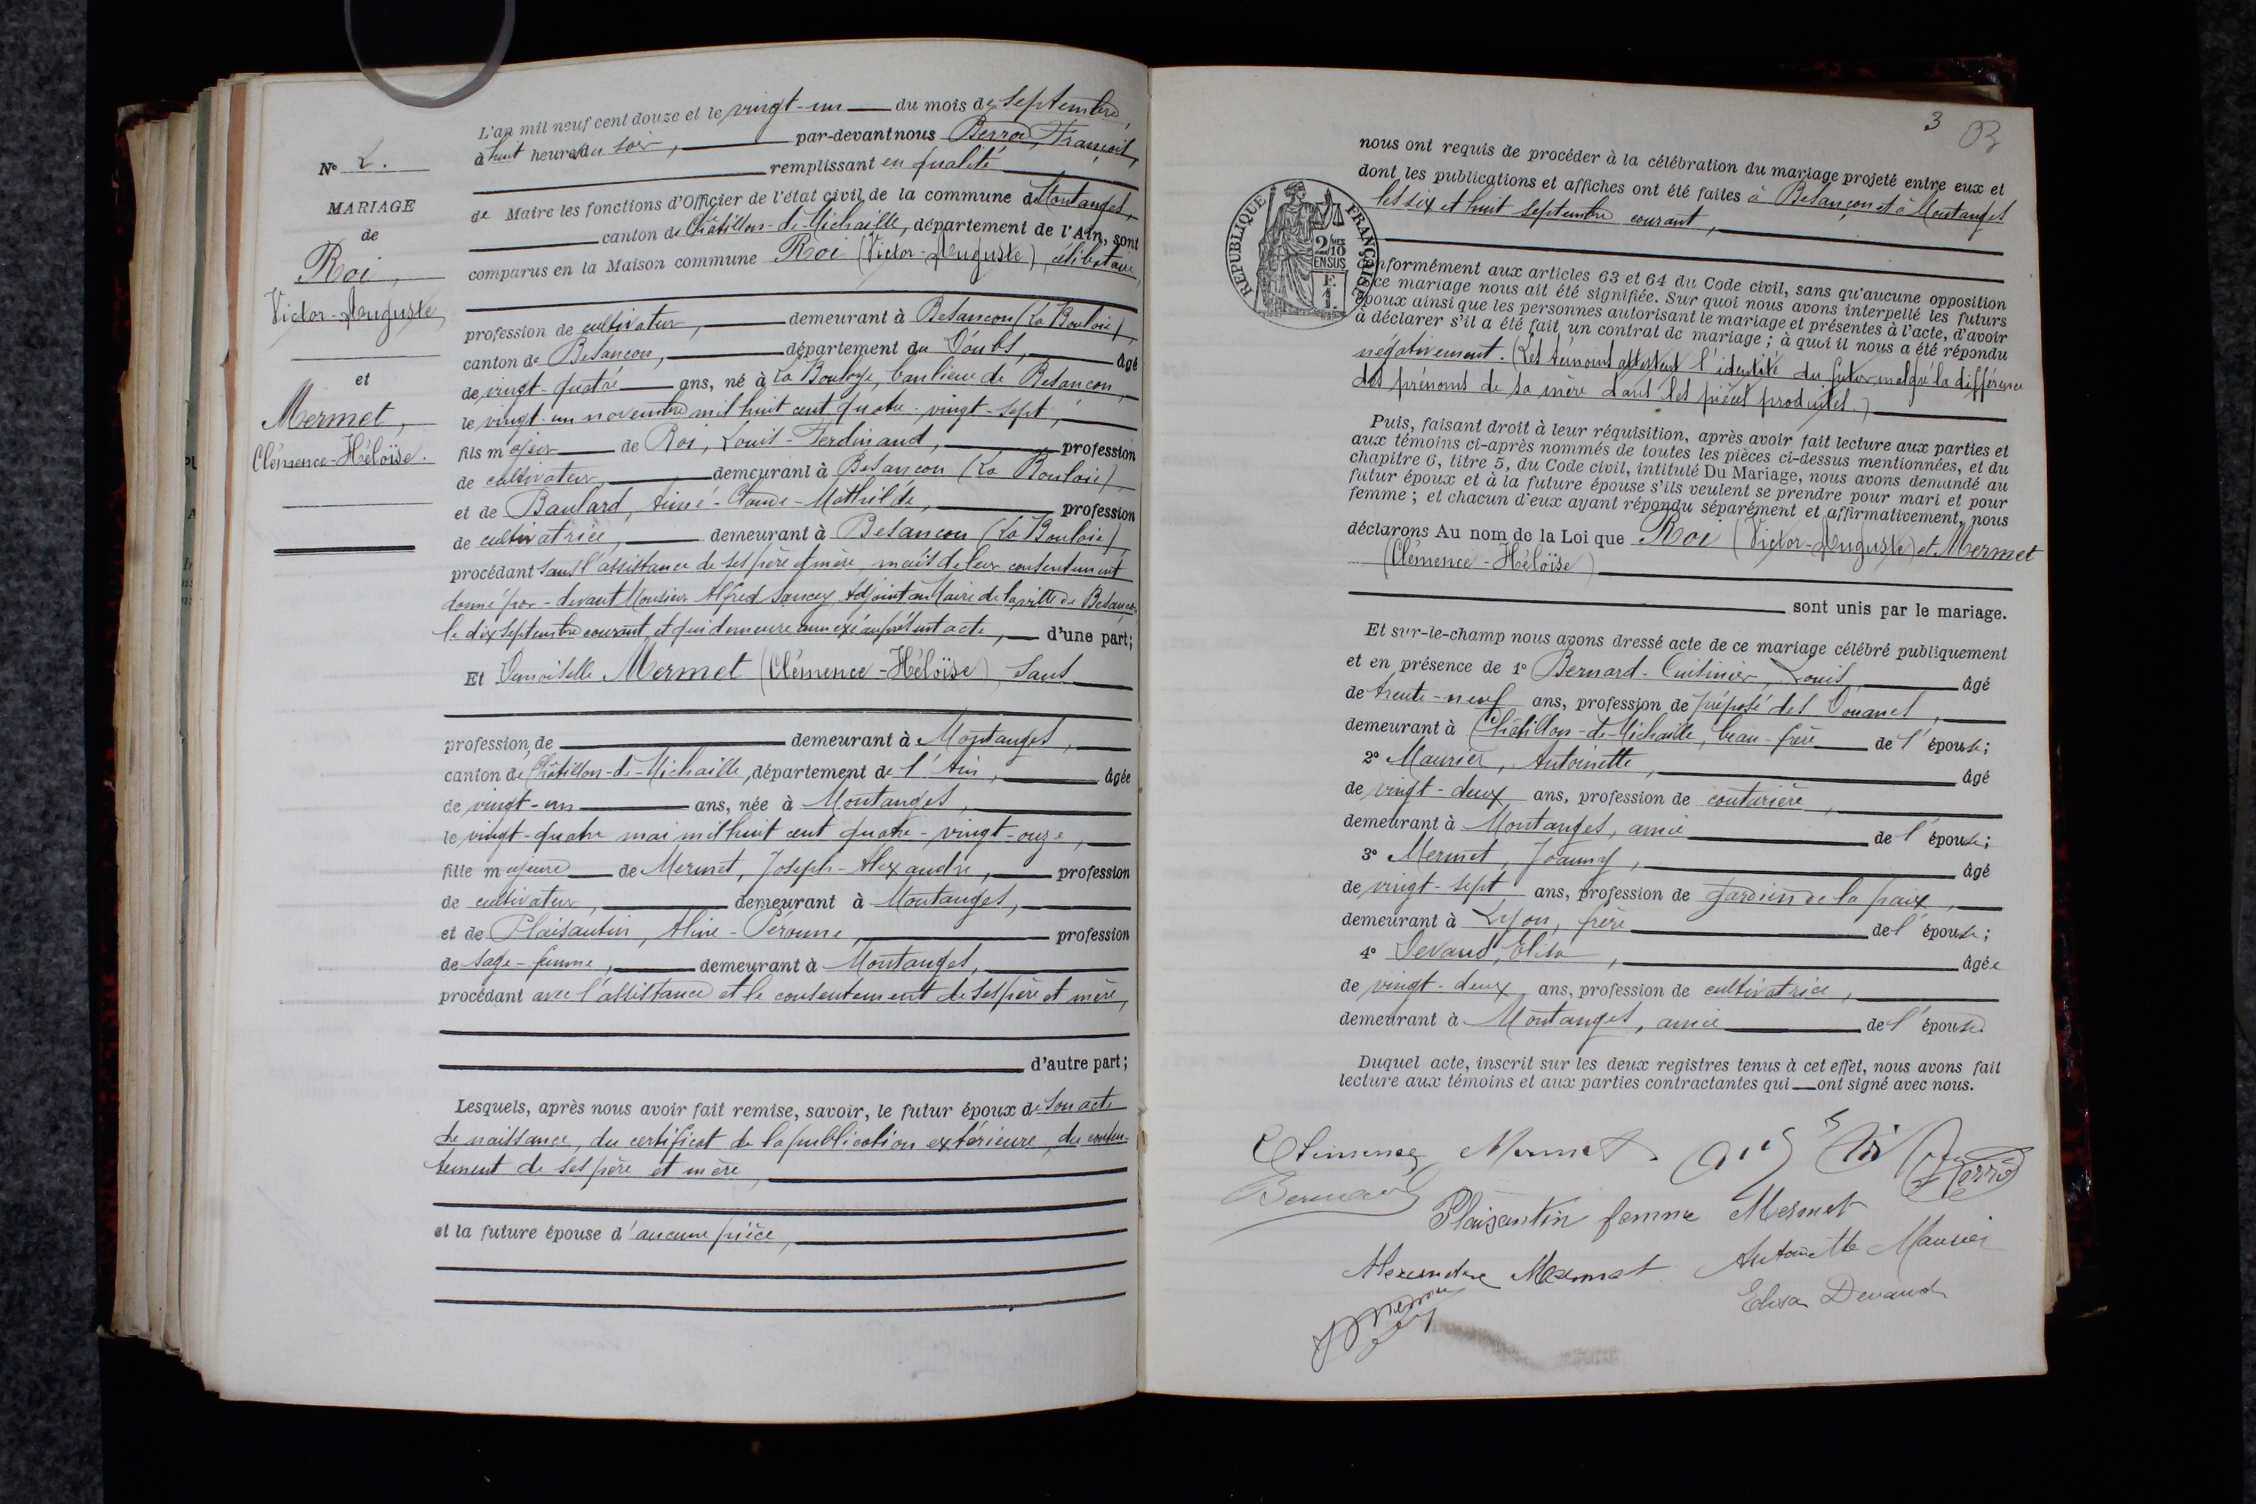 L'an mil neuf cent douze et le vingt-un du mois de Septembre,
à huit heures du soir, par-devant nous Berrod, François,
remplissant en qualité
de Maire les fonctions d'Officier de l'état civil de la commune de Montanges,
canton de Châtillon-de-Michaille, département de l'Ain, sont
comparus en la Maison commune Roi (Victor-Auguste), célibataire,
profession de cultivateur, demeurant à Besançon (La Bouloie),
canton de Besançon, département du Doubs, âgé
de vingt-quatre ans, né à La Bouloye, banlieue de Besançon,
le vingt-un novembre mil huit cent quatre-vingt-sept,
fils majeur de Roi, Louis-Ferdinand, profession
de cultivateur, demeurant à Besançon (La Bouloie)
et de Baulard, Aimé-Claude-Mathilde, profession
de cultivatrice, demeurant à Besançon (La Bouloie),
procédant sans l'assistance de ses père et mère, mais de leur consentement
donné par-devant Monsieur Alfred Saucey, Adjoint au Maire de la ville de Besançon,
le dix septembre courant, et qui demeure annexé au présent acte, d'une part;
Et Demoiselle Mermet (Clémence-Héloïse) sans
profession de demeurant à Montanges,
canton de Châtillon-de-Michaille, département de l'Ain, âgée
de vingt-un ans, née à Montanges,
le vingt-quatre mai mil huit cent quatre-vingt-onze,
fille majeure de Mermet, Joseph-Alexandre, profession
de cultivateur, demeurant à Montanges,
et de Plaisantin, Aline-Péronne, profession
de sage-femme, demeurant à Montanges,
procédant avec l'assistance et le consentement de ses père et mère,
d'autre part;
Lesquels, après nous avoir fait remise, savoir, le futur époux de son acte
de naissance, du certificat de la publication extérieure, du consen-
tement de ses père et mère,
et la future épouse d'aucune pièce,
N° 2.
MARIAGE
de
Roi,
Victor-Auguste
et
Mermet,
Clémence-Héloïse.
3
nous ont requis de procéder à la célébration du mariage projeté entre eux et
dont les publications et affiches ont été faites à Besançon et à Montanges
les six et huit septembre courant,
RÉPUBLIQUE FRANÇAISE
2/10
EN SUS
F.
1.
conformément aux articles 63 et 64 du Code civil, sans qu'aucune opposition
à ce mariage nous ait été signifiée. Sur quoi nous avons interpellé les futurs
époux ainsi que les personnes autorisant le mariage et présentes à l'acte, d'avoir
à déclarer s'il a été fait un contrat de mariage; à quoi il nous a été répondu
négativement. (Les témoins attestent l'identité du futur malgré la différence
des prénoms de sa mère dans les pièces produites.)
Puis, faisant droit à leur réquisition, après avoir fait lecture aux parties et
aux témoins ci-après nommés de toutes les pièces ci-dessus mentionnées, et du
chapitre 6, titre 5, du Code civil, intitulé Du Mariage, nous avons demandé au
futur époux et à la future épouse s'ils veulent se prendre pour mari et pour
femme; et chacun d'eux ayant répondu séparément et affirmativement, nous
déclarons Au nom de la Loi que Roi (Victor-Auguste) et Mermet
(Clémence-Héloïse)
sont unis par le mariage.
Et sur-le-champ nous avons dressé acte de ce mariage célébré publiquement
et en présence de 1° Bernard-Cuisinier, Louis, âgé
de trente-neuf ans, profession de préposé des Douanes,
demeurant à Châtillon-de-Michaille, beau-frère de l'épouse;
2° Maurier, Antoinette, âgé
de vingt-deux ans, profession de couturière,
demeurant à Montanges, amie de l'épouse;
3° Mermet, Joanny, âgé
de vingt-sept ans, profession de gardien de la paix,
demeurant à Lyon, frère de l'épouse;
4° Devaud, Elisa, âgée
de vingt-deux ans, profession de cultivatrice,
demeurant à Montanges, amie de l'épouse
Duquel acte, inscrit sur les deux registres tenus à cet effet, nous avons fait
lecture aux témoins et aux parties contractantes qui ont signé avec nous.
Clémence Mermet
Bernard
Plaisantin femme Mermet
Alexandre Mermet Antoinette Maurier
Elisa Devaud